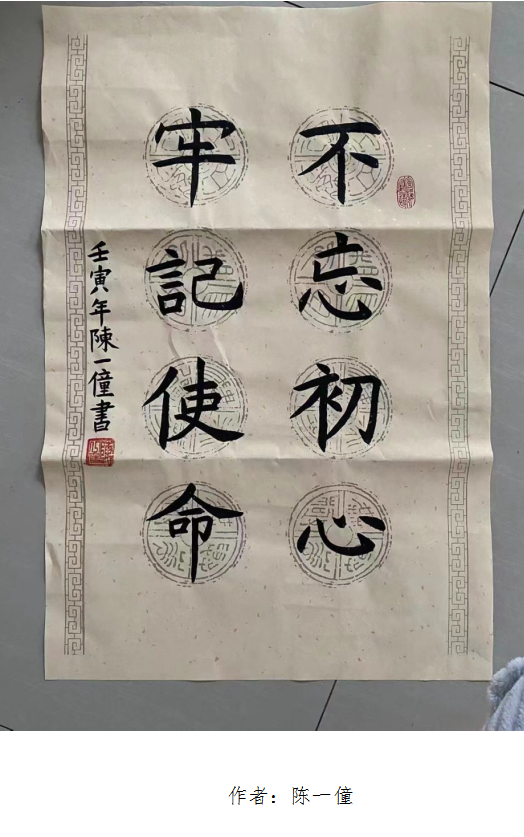 不忘初心
牢記使命
壬寅年陳一僮書
作者：陈一僮